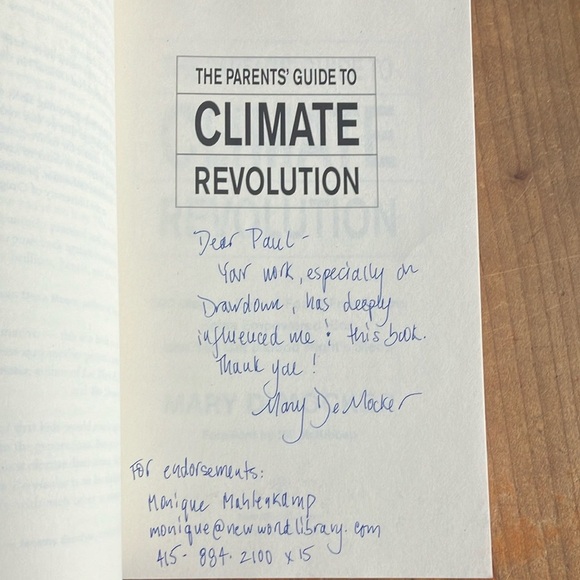 THE PARENTS' GUIDE TO
CLIMATE
REVOLUTION
Dear Paul -
Your work, especially on
Drawdown, has deeply
influenced me & this book.
Thank you!
Mary DeMocker
For endorsements:
Monique Muhlenkamp
monique@newworldlibrary.com
415- 884- 2100 x15